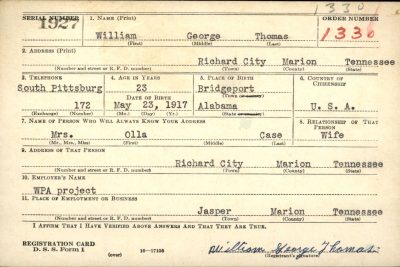 1330
SERIAL NUMBER 1. NAME (Print) ORDER NUMBER
1927 William George Thomas 1330
(First) (Middle) (Last)
2. ADDRESS (Print)
Richard City Marion Tennessee
(Number and street or R. F. D. number) (Town) (County) (State)
3. TELEPHONE 4. AGE IN YEARS 5. PLACE OF BIRTH 6. COUNTRY OF CITIZENSHIP
South Pittsburg 23 Bridgeport
DATE OF BIRTH (Town or county)
172 May 23, 1917 Alabama U. S. A.
(Exchange) (Number) (Mo.) (Day) (Yr.) (State or country)
7. NAME OF PERSON WHO WILL ALWAYS KNOW YOUR ADDRESS 8. RELATIONSHIP OF THAT PERSON
Mrs. Olla Case Wife
(Mr., Mrs., Miss) (First) (Middle) (Last)
9. ADDRESS OF THAT PERSON
Richard City Marion Tennessee
(Number and street or R. F. D. number) (Town) (County) (State)
10. EMPLOYER'S NAME
WPA project
11. PLACE OF EMPLOYMENT OR BUSINESS
Jasper Marion Tennessee
(Number and street or R. F. D. number) (Town) (County) (State)
I AFFIRM THAT I HAVE VERIFIED ABOVE ANSWERS AND THAT THEY ARE TRUE.
REGISTRATION CARD
D. S. S. Form 1 (over) 16-17105 William George Thomas
(Registrant's signature)